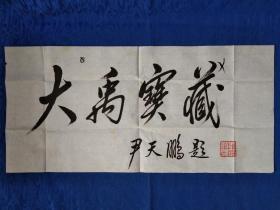 大禹寶藏
尹天鵬題